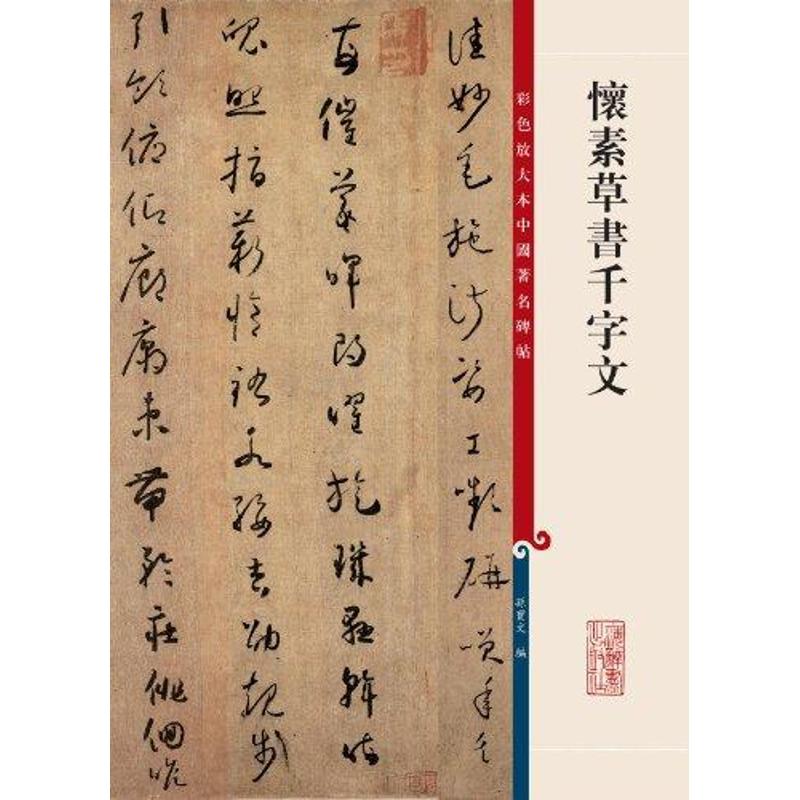 懷素草書千字文
彩色放大本中國著名碑帖
孫寶文 編
佳妙毛施淑姿工顰妍咲年矢
每催羲暉朗曜旋璣懸斡晦
魄照指薪脩祜永綏吉劭矩步
引領俯仰廊廟束帶矜莊徘徊瞻